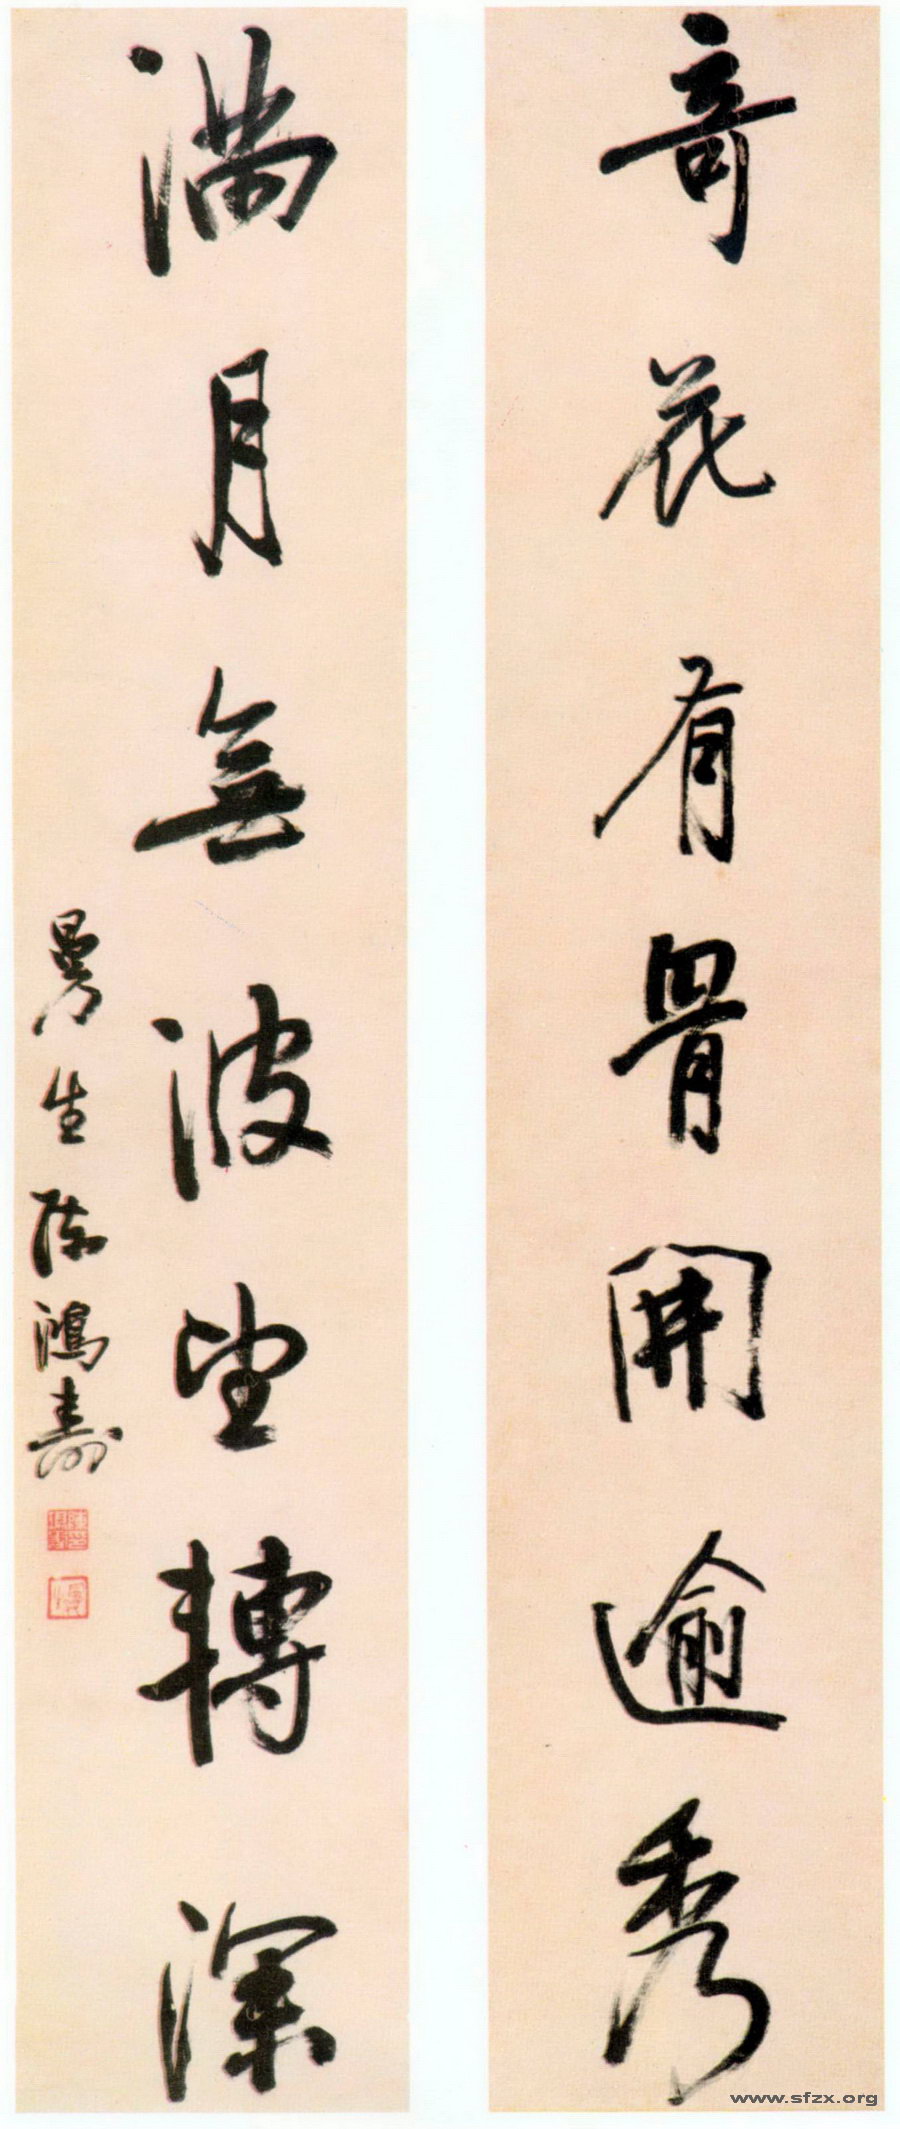 奇花有骨開逾秀
滿月無波望轉深
曼生陈鴻壽
www.sfzx.org